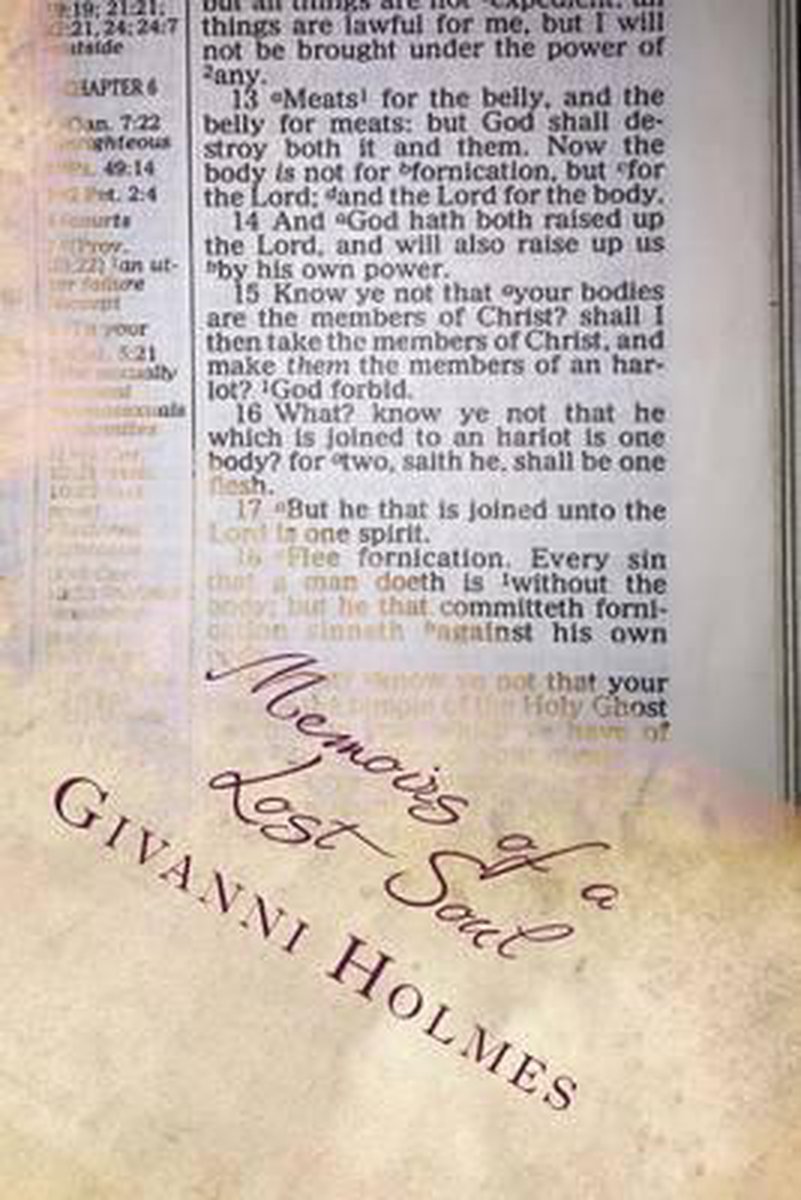 9:19; 21:21;
21, 24; 24:7
CHAPTER 6
7:22
49:14
Pet. 2:4
(Prov.
an ut-
failure
your
5:21
but all things are not expedient: all
things are lawful for me, but I will
not be brought under the power of
²any.
13 ᵃMeats¹ for the belly, and the
belly for meats: but God shall de-
stroy both it and them. Now the
body is not for ᵇfornication, but ᶜfor
the Lord; ᵈand the Lord for the body.
14 And ᵃGod hath both raised up
the Lord, and will also raise up us
ᵇby his own power.
15 Know ye not that ᵃyour bodies
are the members of Christ? shall I
then take the members of Christ, and
make them the members of an har-
lot? ¹God forbid.
16 What? know ye not that he
which is joined to an harlot is one
body? for ᵃtwo, saith he, shall be one
flesh.
17 ᵃBut he that is joined unto the
Lord is one spirit.
18 ᵃFlee fornication. Every sin
that a man doeth is ¹without the
body; but he that committeth forni-
cation sinneth ᵇagainst his own
know ye not that your
temple of the Holy Ghost
which ye have of
Memoirs of a
Lost Soul
GIVANNI HOLMES